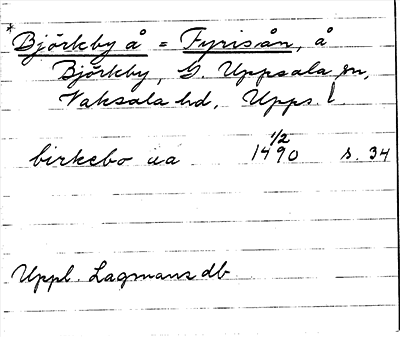 * Björkby å = Fyrisån, å
Björkby, G. Uppsala sn,
Vaksala hd, Upps. l.
birkebo aa 1/2 1490 s. 34
Uppl. Lagmans db